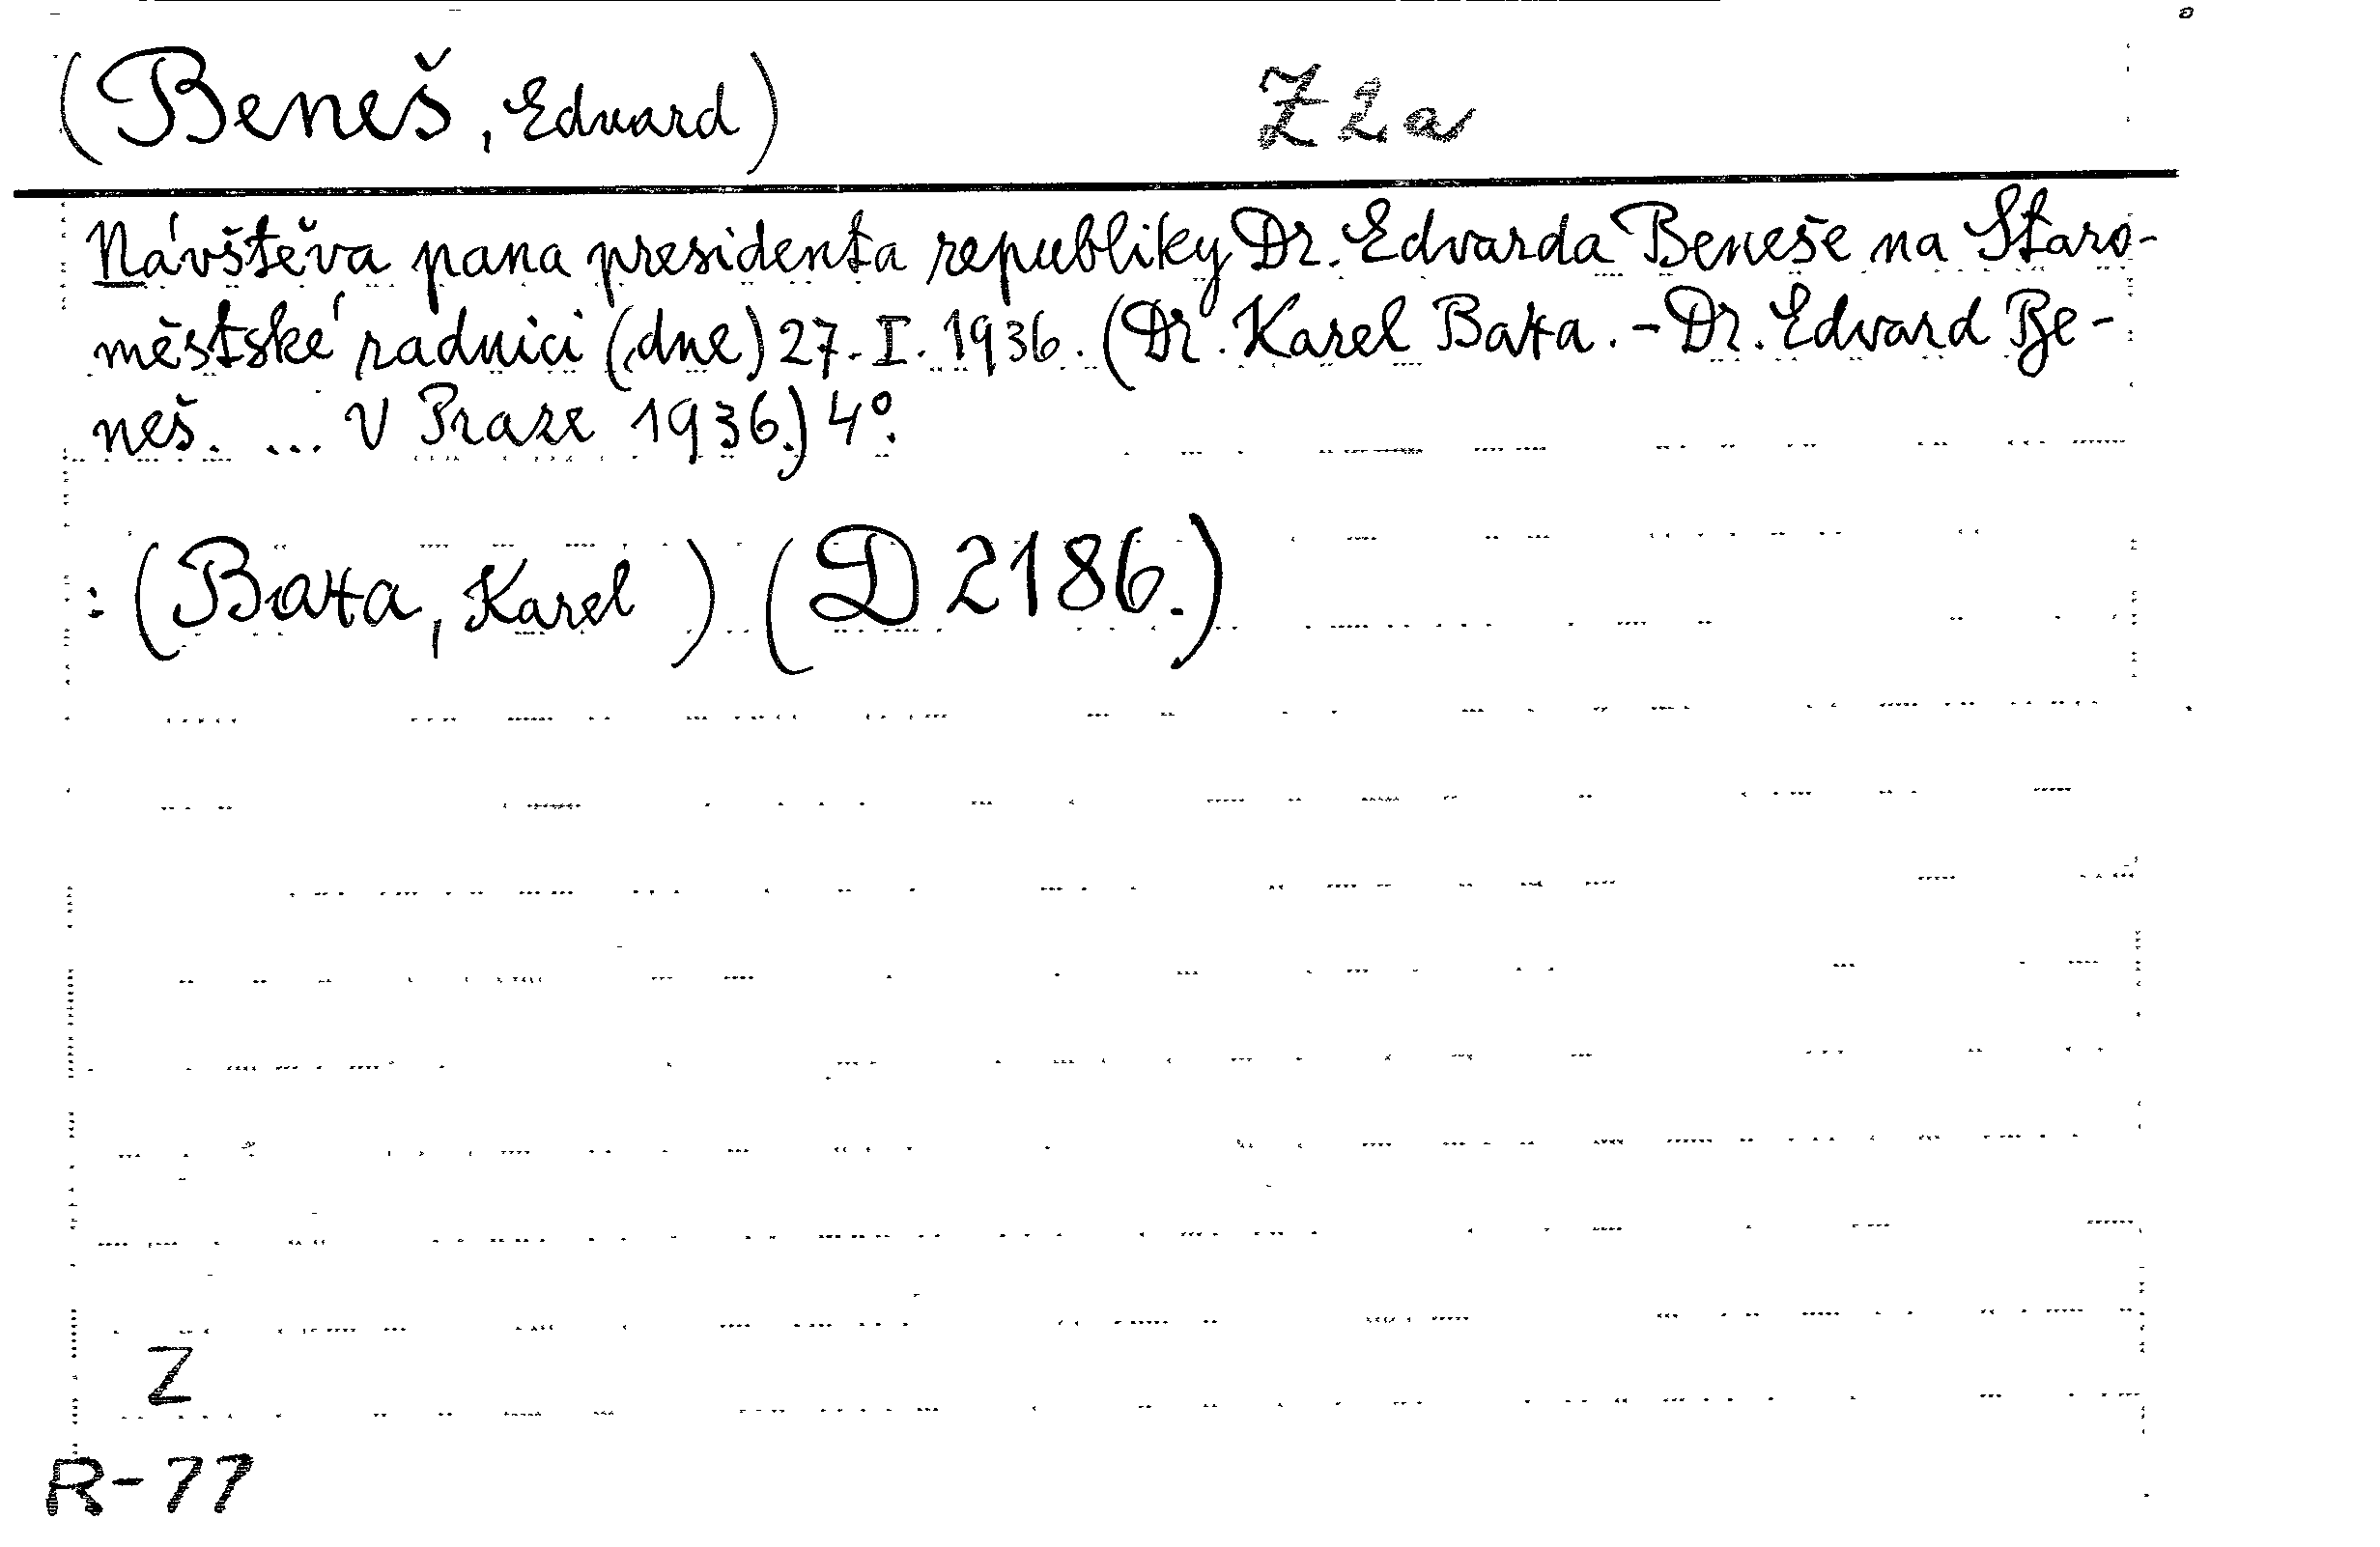 (Beneš, Edvard) Z2a
Návštěva pana presidenta republiky Dr. Edvarda Beneše na Staro-
městské radnici (dne) 27. I. 1936. (Dr. Karel Baxa. - Dr. Edvard Be-
neš. ... V Praze 1936.) 4°.
: (Baxa, Karel) (D 2186.)
Z
R-77